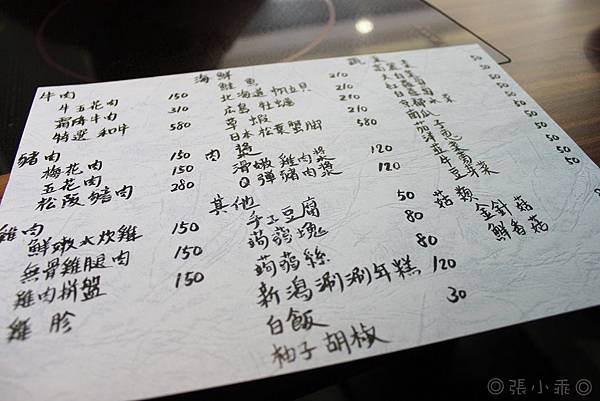 牛肉
牛五花肉 150
霜降牛肉 310
特選和牛 580
豬肉
梅花肉 150
五花肉 150
松阪豬肉 280
雞肉
鮮嫩火炊雞 150
無骨雞腿肉 150
雞肉拼盤 150
雞胗
海鮮
鮭魚 210
北海道帆立貝 210
広島牡蠣 210
草蝦 210
日本松葉蟹腳 580
肉漿
滑嫩雞肉漿 120
Q彈豬肉漿 120
其他
手工豆腐 50
蒟蒻塊 80
蒟蒻絲 80
新潟涮涮年糕 120
白飯 30
柚子胡椒
蔬菜
高麗菜 50
大白菜 50
京都水菜 50
南瓜 50
茄子 50
洋蔥 50
牛蒡 50
豆芽菜 50
菇類
金針菇
鮮香菇
◎張小乖◎